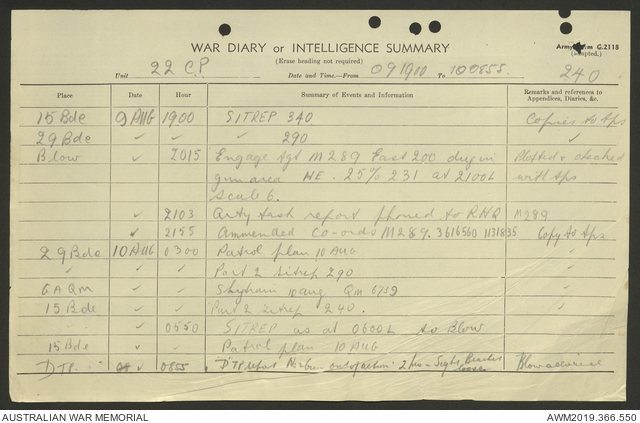 WAR DIARY or INTELLIGENCE SUMMARY
(Erase heading not required)
Army Form G.2118
(adapted.)
Unit 22 C.P Date and Time.—From 091900 To 100855. 240
Place Date Hour Summary of Events and Information Remarks and references to Appendices, Diaries, &c.
15 Bde 9 AUG 1900 SITREP 340 Copies to Aps
29 Bde ✓ ✓ ✓ 290 ✓
Blow ✓ 2015 Engage tgt M289 East 200 dug in Plotted & checked
gun area HE. 25% 231 at 2100L with tps
Scale 6.
✓ 2103 Arty task report phoned to RHQ M289
✓ 2155 Ammended Co-ords M289. 3616560 1131835 Copy to tps
29 Bde 10 AUG 0300 Patrol plan 10 AUG ✓
✓ ✓ ✓ Part 2 sitrep 290 ✓
✓ ✓ 10 aug Qm 6739 ✓
15 Bde ✓ ✓ Part 2 sitrep 240. ✓
✓ 0550 SITREP as at 0600L to Blow
15 Bde ✓ Patrol plan 10 AUG ✓
DTP ✓ 0855 DTP report No 6 gun out of action 2 hrs - Sight loose
AUSTRALIAN WAR MEMORIAL AWM2019.366.550